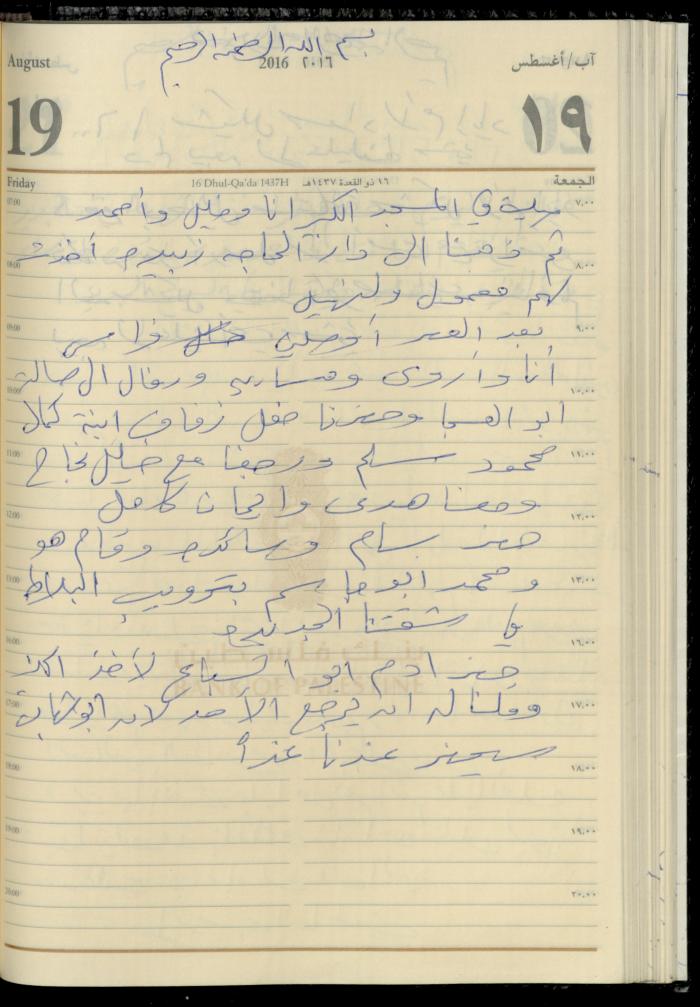 بسم الله الرحمن الرحيم
August
2016 ٢٠١٦
آب/أغسطس
19
١٩
Friday
16 Dhul-Qa'da 1437H
١٦ ذو القعدة ١٤٣٧هـ
الجمعة
صليت في المسجد الكبير انا وخليل وأحمد
ثم ذهبنا الى دار الحاجه زبيده أخذت
لهم معمول
بعد العصر أوصلني
أنا وأروى و ونضال الى صالة
ابو العسل وحضرنا حفل زفاف ابنة كمال
محمود سلم ورجعنا مع خليل نجاح
ومعنا هدى وايمان كامل
حضر بسام وساكده وقام هو
ومحمد ابو جاسم بتزويب البلاط
في شقتنا الجديده
حضر ادم ابو السباع لأخذ اكل
وقلنا له ان يرجع الأحد لان ابو شهابة
سيحضر عندنا غداً
BANK OF PALESTINE
07:00 ٧,٠٠
08:00 ٨,٠٠
09:00 ٩,٠٠
10:00 ١٠,٠٠
11:00 ١١,٠٠
12:00 ١٢,٠٠
13:00 ١٣,٠٠
16:00 ١٦,٠٠
17:00 ١٧,٠٠
18:00 ١٨,٠٠
19:00 ١٩,٠٠
20:00 ٢٠,٠٠